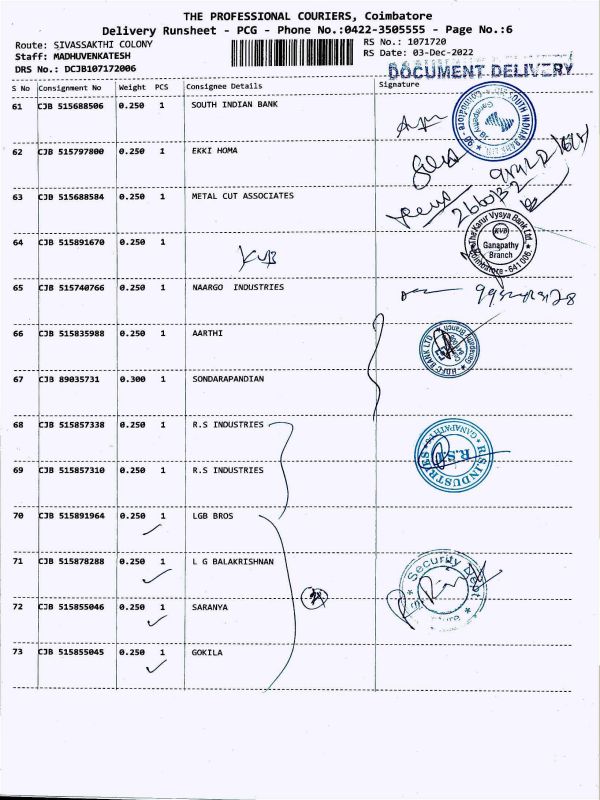 THE PROFESSIONAL COURIERS, Coimbatore
Delivery Runsheet - PCG - Phone No.:0422-3505555 - Page No.:6
Route: SIVASSAKTHI COLONY
Staff: MADHUVENKATESH
DRS No.: DCJB107172006
RS No.: 1071720
RS Date: 03-Dec-2022
DOCUMENT DELIVERY
S No Consignment No Weight PCS Consignee Details Signature
61 CJB 515688506 0.250 1 SOUTH INDIAN BANK
62 CJB 515797800 0.250 1 EKKI HOMA
63 CJB 515688584 0.250 1 METAL CUT ASSOCIATES
64 CJB 515891670 0.250 1
KVB
The Karur Vysya Bank Ltd.
KVB
Ganapathy
Branch
Coimbatore - 641 006
65 CJB 515740766 0.250 1 NAARGO INDUSTRIES
66 CJB 515835988 0.250 1 AARTHI
HDFC BANK LTD
67 CJB 89035731 0.300 1 SONDARAPANDIAN
68 CJB 515857338 0.250 1 R.S INDUSTRIES
R.S.INDUSTRIES
R.S.I
69 CJB 515857310 0.250 1 R.S INDUSTRIES
70 CJB 515891964 0.250 1 LGB BROS
71 CJB 515878288 0.250 1 L G BALAKRISHNAN
Security Dept
72 CJB 515855046 0.250 1 SARANYA
73 CJB 515855045 0.250 1 GOKILA